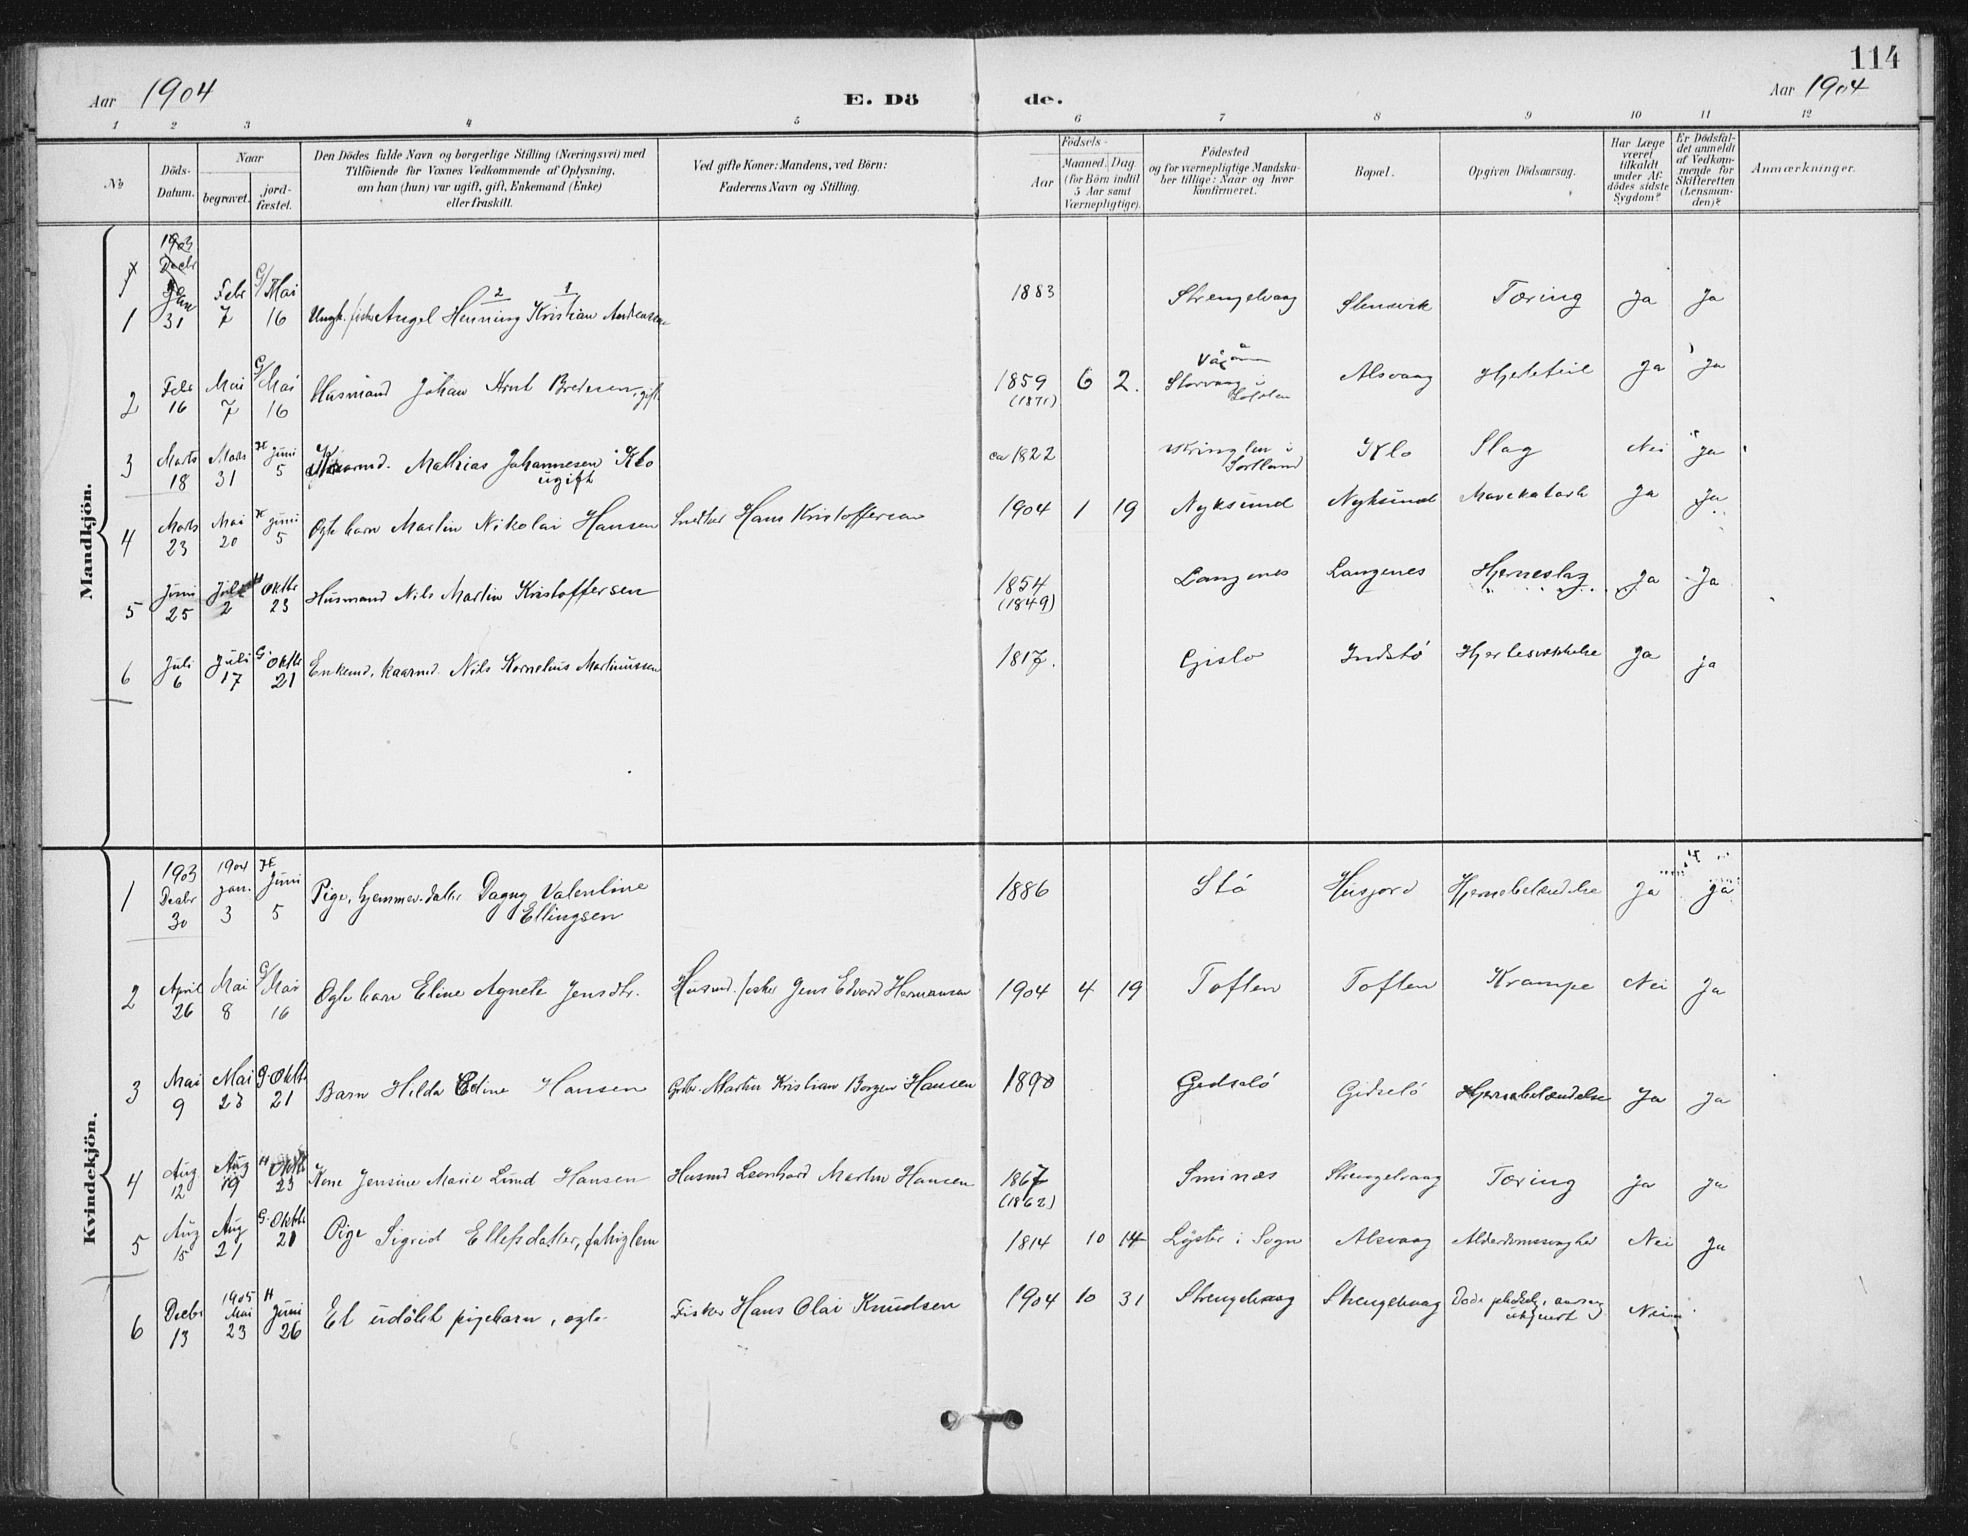 114
Aar 1904
E. Dö de.
Aar 1904
1 2 3 4 5 6 7 8 9 10 11 12
No
Döds-Datum.
Naar
begravet.
jord-fæstet.
Den Dödes fulde Navn og borgerlige Stilling (Næringsvei) med
Tilföiende for Voxnes Vedkommende af Oplysning,
om han (hun) var ugift, gift, Enkemand (Enke)
eller fraskilt.
Ved gifte Koner: Mandens, ved Börn:
Faderens Navn og Stilling.
Födsels-
Aar
Maaned. Dag.
(for Börn indtil
5 Aar samt
Værnepligtige).
Födested
og for værnepligtige Mandsku-
ber tillige: Naar og hvor
konfirmeret.
Bopæl.
Opgiven Dödsaarsag.
Har Læge
været
tilkaldt
under Af-
dödes sidste
Sygdom?
Er Dödsfal-
det anmeldt
af Vedkom-
mende for
Skifteretten
(Lensman-
den)?
Anmærkninger.
Mandkjön.
1903
Decbr
1 31 Febr 7 G/ Mai 16 Ungk. fisker Angel Henning Kristian Andreassen 1883 Strengelvaag Stensvik Tæring Ja Ja
2 1
2 Febr 16 Mai 7 G/ Mai 16 Husmand Johan Arnt Bredesen, gift. 1859 (1871) 6 2. Storvaag i Alsvaag Hjertefeil Ja Ja
3 Marts 18 Marts 31 H Juni 5 Kaarmd. Mathias Johannesen Klo ugift ca 1822 Kringlen i Sortland Klo Slag Nei Ja
4 Marts 23 Mai 20 H Juni 5 Ægte barn Martin Nikolai Hansen Hans Kristoffersen 1904 1 19 Nyksund Nyksund Mavekatarh Ja Ja
5 Juni 25 Juli 2 H Oktbr 23 Husmand Nils Martin Kristoffersen 1854 (1849) Langenes Langenes Hjerneslag Ja Ja
6 Juli 6 Juli 17 G. Oktbr 21 Enkemd, kaarmd. Nils Kornelius Martinussen 1817. Gislø Indstø Hjertesvækkelse Ja ja
Kvindekjön.
1 1903 Decbr 30 1904 Jan. 3 H Juni 5 Pige, hjemmev. datter Dagny Valentine Ellingsen 1886 Stø Husjord Hjernebetændelse Ja Ja
2 April 26 Mai 8 G/ Mai 16 Ægte barn Eline Agnete Jensdtr. Husmd. fisker Jens Edvard Hermansen 1904 4 19 Toften Toften Krampe Nei Ja
3 Mai 9 Mai 23 G. Oktbr 21 Barn Hilda Edine Hansen Martin Kristian Borgen Hansen 1890 Gidselö Gidselö Hjernebetændelse Ja Ja
4 Aug 12 Aug 19 H Oktbr 23 Kone Jensine Marie Lund Hansen Husmd Leonhard Martin Hansen 1867 (1862) Sminæs Strengelvaag Tæring Ja Ja
5 Aug 15 Aug 21 G. Oktbr 21 Pige Sigrid Ellefsdatter, fattiglem 1814 10 14 Lyster i Sogn Alsvaag Alderdomssvaghed Nei Ja
6 Decbr 13 1905 Mai 23 H Juni 26 Et udöbt pigebarn, ægte Fisker Hans Olai Knudsen 1904 10 31 Strengelvaag Strengelvaag Døde pludselig, aarsag ukjendt Nei